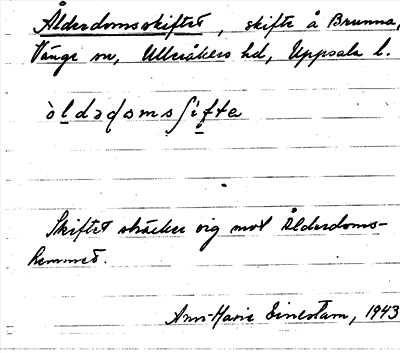 Ålderdomsskiftet, skifte å Brunna,
Vänge sn, Ulleråkers hd, Uppsala l.
òldədomsʃifta
Skiftet sträcker sig mot Ålderdoms-
hemmet.
Ann-Marie Einestam, 1943